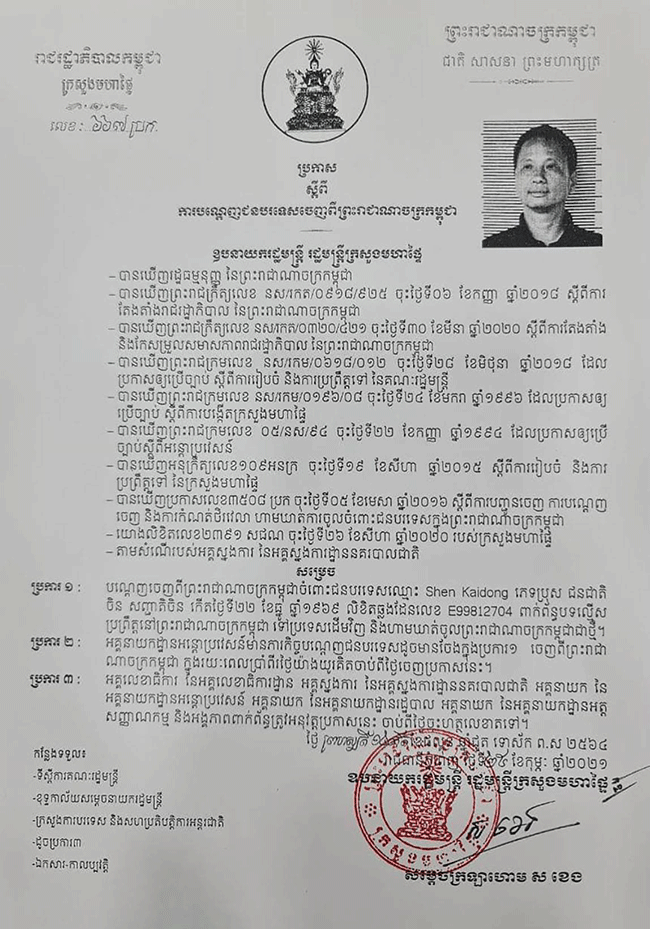 ព្រះរាជាណាចក្រកម្ពុជា
ជាតិ សាសនា ព្រះមហាក្សត្រ
រាជរដ្ឋាភិបាលកម្ពុជា
ក្រសួងមហាផ្ទៃ
លេខ : ៦៦៧ ប្រក.
ប្រកាស
ស្តីពី
ការបណ្តេញជនបរទេសចេញពីព្រះរាជាណាចក្រកម្ពុជា
ឧបនាយករដ្ឋមន្ត្រី រដ្ឋមន្ត្រីក្រសួងមហាផ្ទៃ
– បានឃើញរដ្ឋធម្មនុញ្ញ នៃព្រះរាជាណាចក្រកម្ពុជា
– បានឃើញព្រះរាជក្រឹត្យលេខ នស/រកត/០៩១៨/៩២៥ ចុះថ្ងៃទី០៦ ខែកញ្ញា ឆ្នាំ២០១៨ ស្តីពីការ
តែងតាំងរាជរដ្ឋាភិបាល នៃព្រះរាជាណាចក្រកម្ពុជា
– បានឃើញព្រះរាជក្រឹត្យលេខ នស/រកត/០៣២០/៤២១ ចុះថ្ងៃទី៣០ ខែមីនា ឆ្នាំ២០២០ ស្តីពីការតែងតាំង
និងកែសម្រួលសមាសភាពរាជរដ្ឋាភិបាល នៃព្រះរាជាណាចក្រកម្ពុជា
– បានឃើញព្រះរាជក្រមលេខ នស/រកម/០៦១៨/០១២ ចុះថ្ងៃទី២៨ ខែមិថុនា ឆ្នាំ២០១៨ ដែល
ប្រកាសឲ្យប្រើច្បាប់ ស្តីពីការរៀបចំ និងការប្រព្រឹត្តទៅ នៃគណៈរដ្ឋមន្ត្រី
– បានឃើញព្រះរាជក្រមលេខ នស/រកម/០១៩៦/០៨ ចុះថ្ងៃទី២៤ ខែមករា ឆ្នាំ១៩៩៦ ដែលប្រកាសឲ្យ
ប្រើច្បាប់ ស្តីពីការបង្កើតក្រសួងមហាផ្ទៃ
– បានឃើញព្រះរាជក្រមលេខ ០៥/នស/៩៤ ចុះថ្ងៃទី២២ ខែកញ្ញា ឆ្នាំ១៩៩៤ ដែលប្រកាសឲ្យប្រើ
ច្បាប់ស្តីពីអន្តោប្រវេសន៍
– បានឃើញអនុក្រឹត្យលេខ១០៩អនក្រ ចុះថ្ងៃទី១៩ ខែសីហា ឆ្នាំ២០១៥ ស្តីពីការរៀបចំ និងការ
ប្រព្រឹត្តទៅ នៃក្រសួងមហាផ្ទៃ
– បានឃើញប្រកាសលេខ៣៥០៨ ប្រក ចុះថ្ងៃទី០៥ ខែមេសា ឆ្នាំ២០១៦ ស្តីពីការបញ្ជូនចេញ ការបណ្តេញ
ចេញ និងការកំណត់ថិរវេលា ហាមឃាត់ការចូលចំពោះជនបរទេសក្នុងព្រះរាជាណាចក្រកម្ពុជា
– យោងលិខិតលេខ២៣៩១ សជណ ចុះថ្ងៃទី២៦ ខែសីហា ឆ្នាំ២០២០ របស់ក្រសួងមហាផ្ទៃ
– តាមសំណើរបស់អគ្គស្នងការ នៃអគ្គស្នងការដ្ឋាននគរបាលជាតិ
សម្រេច
ប្រការ ១ : បណ្តេញចេញពីព្រះរាជាណាចក្រកម្ពុជាចំពោះជនបរទេសឈ្មោះ Shen Kaidong ភេទប្រុស ជនជាតិ
ចិន សញ្ជាតិចិន កើតថ្ងៃទី២២ ខែធ្នូ ឆ្នាំ១៩៦៩ លិខិតឆ្លងដែនលេខ E99812704 ពាក់ព័ន្ធបទល្មើស
ប្រព្រឹត្តនៅព្រះរាជាណាចក្រកម្ពុជា ទៅប្រទេសដើមវិញ និងហាមឃាត់ចូលព្រះរាជាណាចក្រកម្ពុជាជាថ្មី។
ប្រការ ២ : អគ្គនាយកដ្ឋានអន្តោប្រវេសន៍មានភារកិច្ចបណ្តេញជនបរទេសដូចមានចែងក្នុងប្រការ១ ចេញពីព្រះរា
ជាណាចក្រកម្ពុជា ក្នុងរយៈពេលប្រាំពីរថ្ងៃយ៉ាងយូរគិតចាប់ពីថ្ងៃចេញប្រកាសនេះ។
ប្រការ ៣ : អគ្គលេខាធិការ នៃអគ្គលេខាធិការដ្ឋាន អគ្គស្នងការ នៃអគ្គស្នងការដ្ឋាននគរបាលជាតិ អគ្គនាយក នៃ
អគ្គនាយកដ្ឋានអន្តោប្រវេសន៍ អគ្គនាយក នៃអគ្គនាយកដ្ឋានរដ្ឋបាល អគ្គនាយក នៃអគ្គនាយកដ្ឋានអត្ត
សញ្ញាណកម្ម និងអង្គភាពពាក់ព័ន្ធត្រូវអនុវត្តប្រកាសនេះ ចាប់ពីថ្ងៃចុះហត្ថលេខាតទៅ។
ថ្ងៃ ឆ្នាំជូត ទោស័ក ព.ស ២៥៦៤
រាជធានីភ្នំពេញ ថ្ងៃទី ខែកុម្ភៈ ឆ្នាំ២០២១
ឧបនាយករដ្ឋមន្ត្រី រដ្ឋមន្ត្រីក្រសួងមហាផ្ទៃ
កន្លែងទទួល៖
-ទីស្តីការគណៈរដ្ឋមន្ត្រី
-ខុទ្ទកាល័យសម្តេចនាយករដ្ឋមន្ត្រី
-ក្រសួងការបរទេស និងសហប្រតិបត្តិការអន្តរជាតិ
-ដូចប្រការ៣
-ឯកសារ-កាលប្បវត្តិ
ក្រសួងមហាផ្ទៃ
សម្តេចក្រឡាហោម ស ខេង